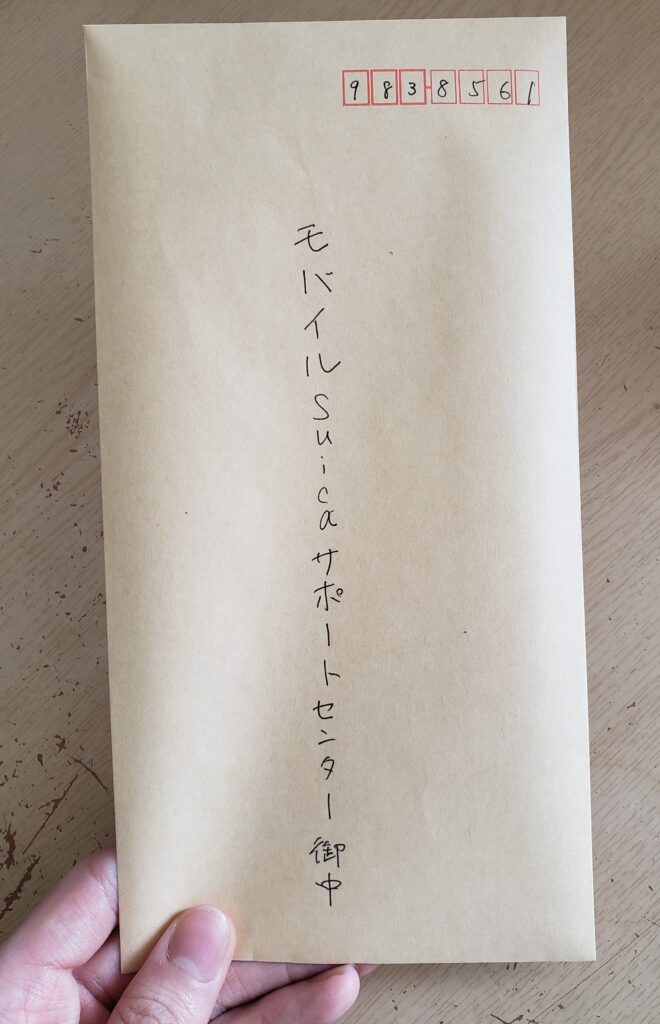 983-8561
モバイルSuicaサポートセンター御中